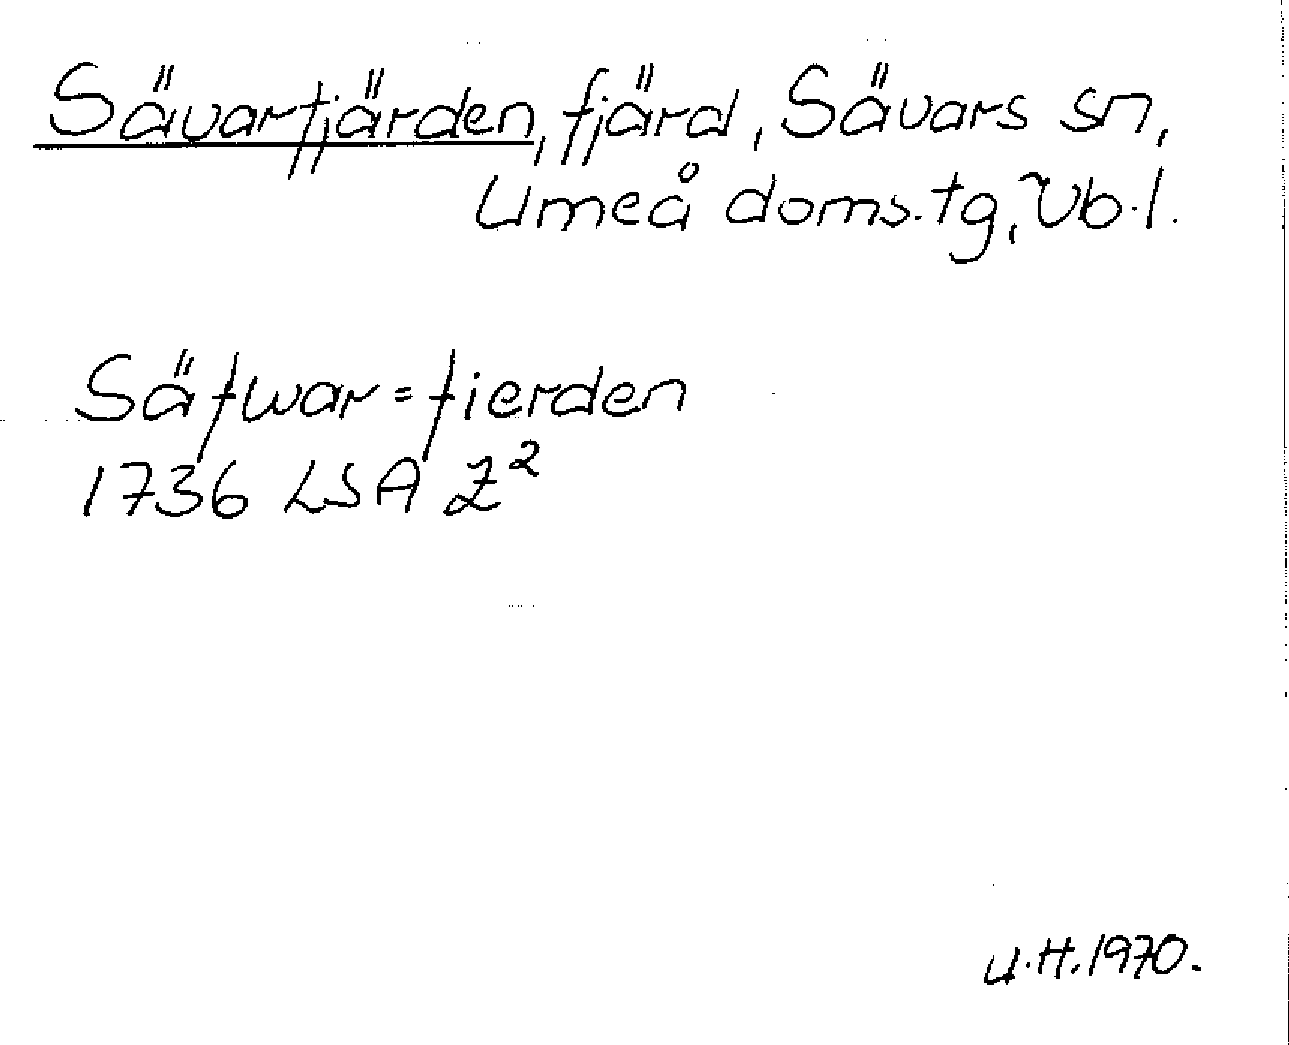 Sävarfjärden, fjärd, Sävars sn,
Umeå doms.tg, Vb.l.
Säfwar=fierden
1736 LSA Z²
U.H. 1970.